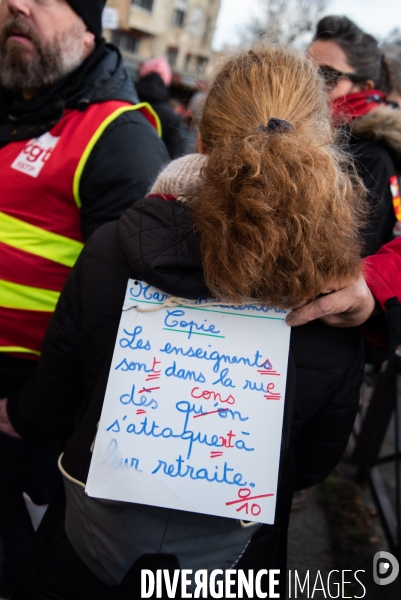 cgt
RATP
Mardi décembre
Copie
Les enseignents
sont dans la rue
cons
dès qu'on
s'attaquert à
leur retraite.
0/10
DIVERGENCE IMAGES / D